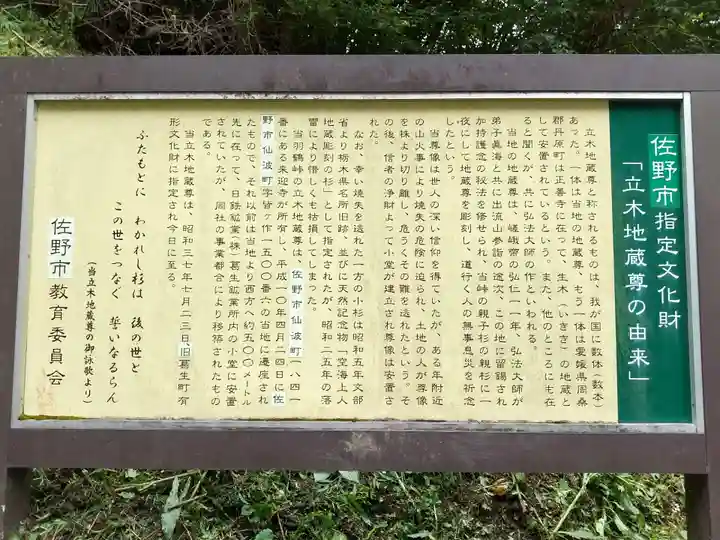 佐野市指定文化財
「立木地蔵尊の由来」
立木地蔵尊と称されるものは、我が国に数体(数本)
あった。一体は当地の地蔵尊、もう一体は愛媛県周桑
郡丹原町は正善寺に在って、生木(いきき)の地蔵と
して安置されているという。また、他のところにも在
ると聞くが、共に弘法大師の作といわれる。
当地の地蔵尊は、嵯峨帝の弘仁一一年、弘法大師が
弟子真海と共に出流山参詣の途次、この地に留錫され
加持護念の秘法を修せられ、当峠の親子杉の親杉に一
夜にして地蔵尊を彫刻し、道行く人の無事息災を祈念
したという。
当尊像は世人の深い信仰を得ていたが、ある年附近
の山火事により焼失の危険に迫られ、土地の人が尊像
を株より切り離し、危うくその難を逃れたという。そ
の後、信者の浄財よって小堂が建立され尊像は安置さ
れた。
なお、幸い焼失を逃れた一方の小杉は昭和五年文部
省より栃木県名所旧跡、並びに天然記念物「空海上人
地蔵彫刻の杉」として指定されたが、昭和二五年の落
雷により惜しくも枯損してしまった。
当羽鶴峠の立木地蔵尊は、佐野市仙波町一八四一
番にある来迎寺が所有し、平成一〇年四月二四日に佐
野市仙波町字皆ヶ作一五〇〇番六の当地に遷座され
たもので、それ以前は当地より西方へ約五〇〇メートル
先に在って、日鉄鉱業(株)葛生鉱業所内の小堂に安置
されていたが、同社の事業都合により移築されたもの
である。
当立木地蔵尊は、昭和三七年七月二三日、旧葛生町有
形文化財に指定され今日に至る。
ふたもとに わかれし杉は 後の世と
この世をつなぐ 誓いなるらん
(当立木地蔵尊の御詠歌より)
佐野市教育委員会